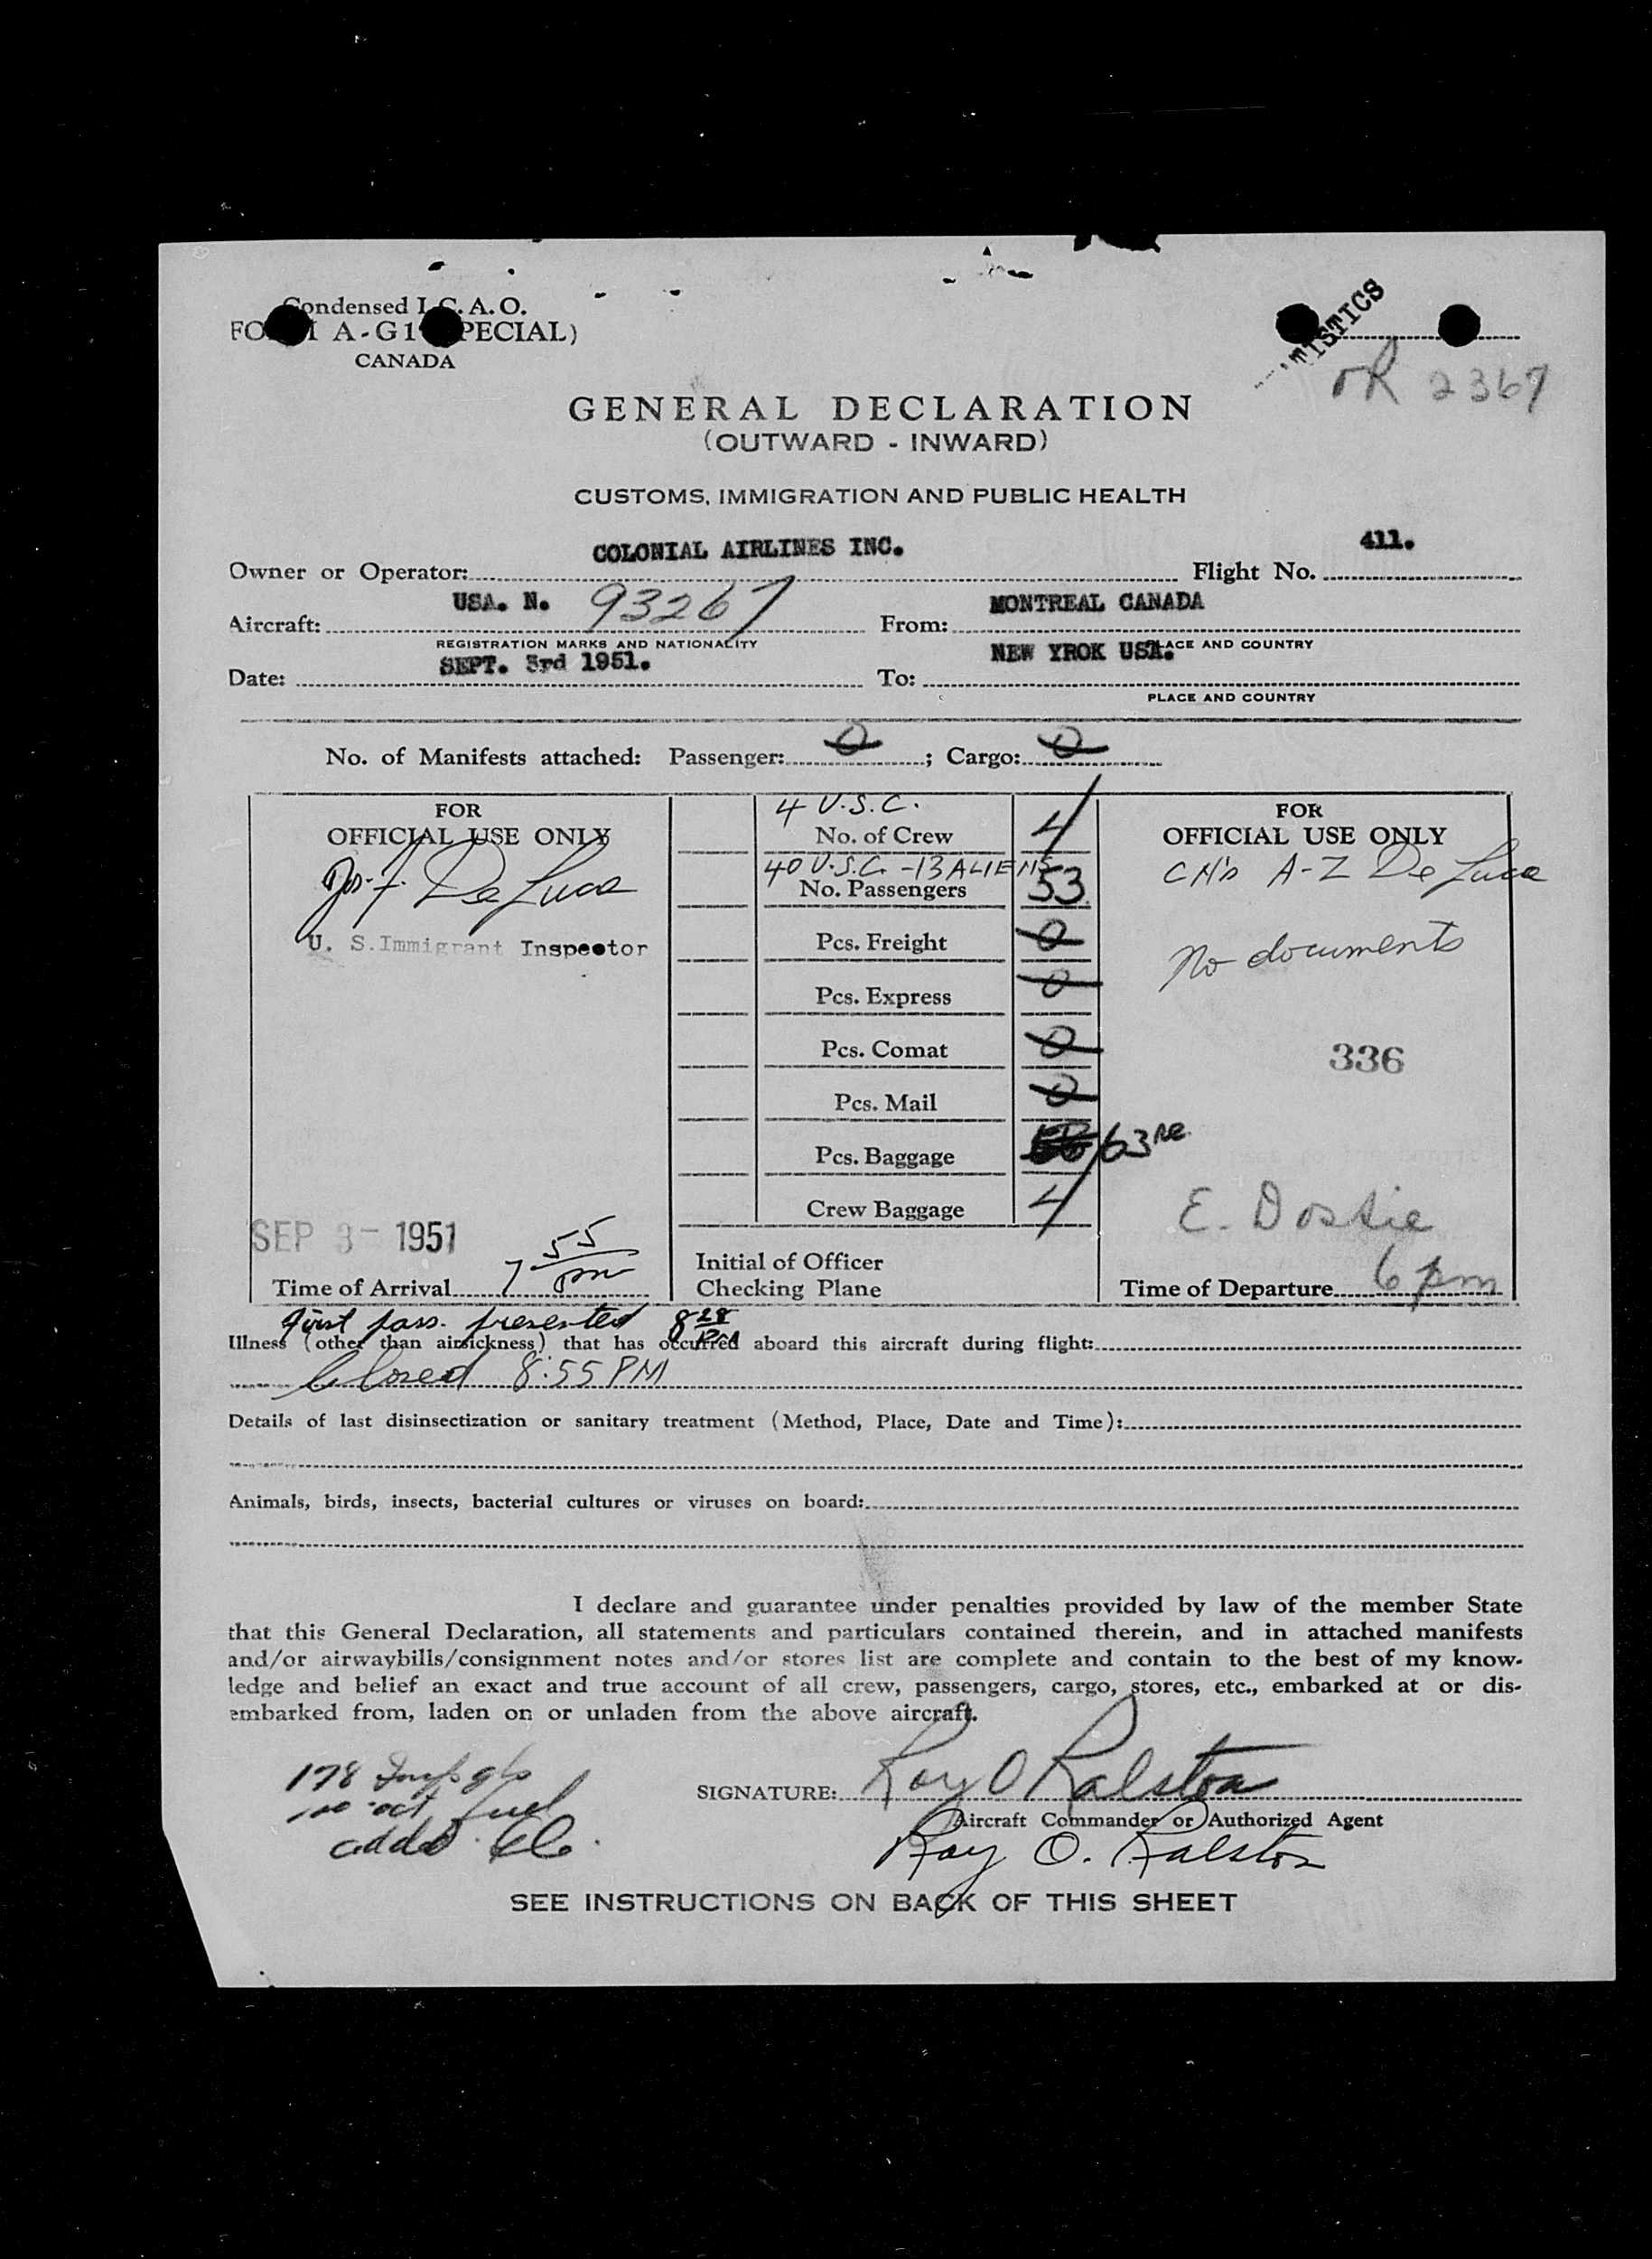 Condensed I.C.A.O.
FORM A-G1 (SPECIAL)
CANADA
TISTICS
2367
GENERAL DECLARATION
(OUTWARD - INWARD)
CUSTOMS, IMMIGRATION AND PUBLIC HEALTH
Owner or Operator: COLONIAL AIRLINES INC. Flight No. 411.
Aircraft: USA. N. 93267 From: MONTREAL CANADA
REGISTRATION MARKS AND NATIONALITY PLACE AND COUNTRY
Date: SEPT. 3rd 1951. To: NEW YROK USA.
PLACE AND COUNTRY
No. of Manifests attached: Passenger: 0 ; Cargo: 0
FOR
OFFICIAL USE ONLY
Jos. F. De Luca
U. S. Immigrant Inspector
SEP 3- 1951
Time of Arrival 7 55 pm
4 U.S.C.
No. of Crew 4
40 U.S.C. - 13 ALIENS
No. Passengers 53
Pcs. Freight 0
Pcs. Express 0
Pcs. Comat 0
Pcs. Mail 0
Pcs. Baggage 63
Crew Baggage 4
Initial of Officer
Checking Plane
FOR
OFFICIAL USE ONLY
A-Z De Luca
No documents
336
E. Dostie
Time of Departure 6 pm
first pass. presented 8 28 PM
Illness (other than airsickness) that has occurred aboard this aircraft during flight:
Closed 8:55 PM
Details of last disinsectization or sanitary treatment (Method, Place, Date and Time):
Animals, birds, insects, bacterial cultures or viruses on board:
I declare and guarantee under penalties provided by law of the member State
that this General Declaration, all statements and particulars contained therein, and in attached manifests
and/or airwaybills/consignment notes and/or stores list are complete and contain to the best of my know-
ledge and belief an exact and true account of all crew, passengers, cargo, stores, etc., embarked at or dis-
embarked from, laden on or unladen from the above aircraft.
178 Imp gls
100 oct fuel
added
SIGNATURE: Roy O Ralston
Aircraft Commander or Authorized Agent
Roy O. Ralston
SEE INSTRUCTIONS ON BACK OF THIS SHEET